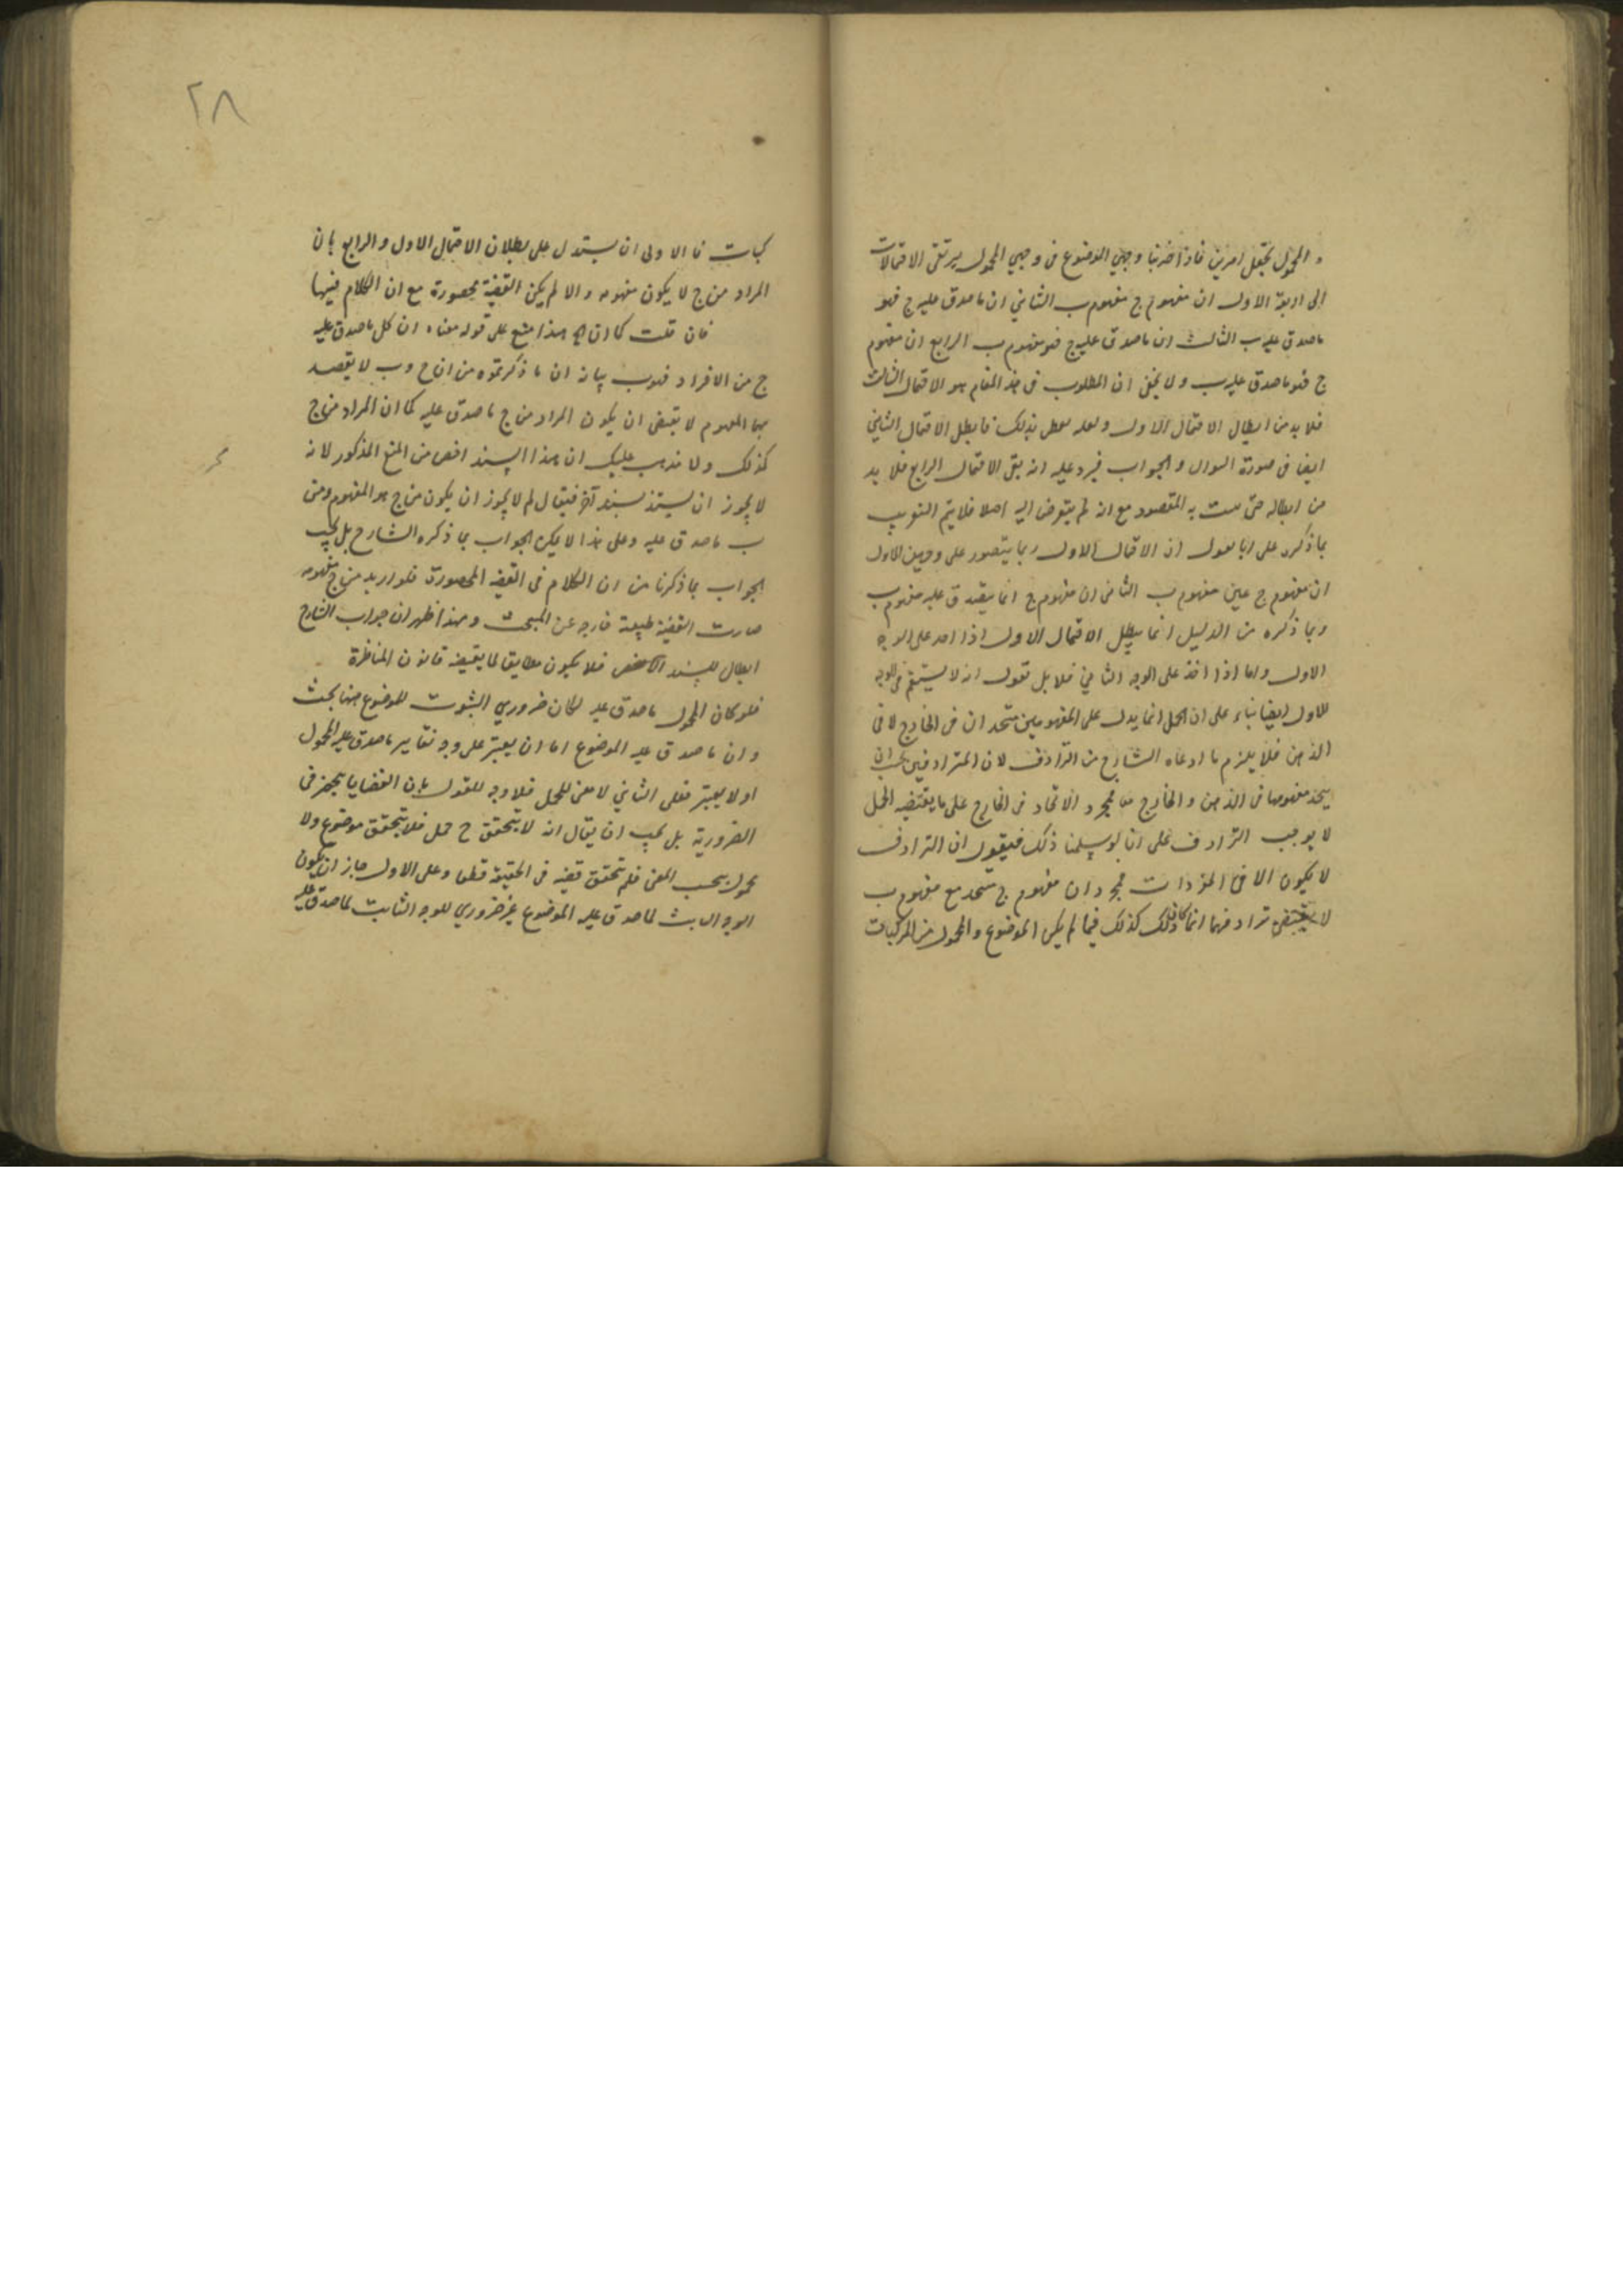 والمحمول يحتمل امرين فاذا ضربنا وجهي الموضوع في وجهي المحمول يرتقي الاحتمالات
الى اربعة الاول ان مفهوم ج مفهوم ب الثاني ان ما صدق عليه ج فهو
ما صدق عليه ب الثالث ان ما صدق عليه ج فهو مفهوم ب الرابع ان مفهوم
ج فهو ما صدق عليه ب ولا يخفى ان المطلوب في هذا المقام هو الاحتمال الثالث
فلا بد من ابطال الاحتمال الاول بذلك فابطل الاحتمال الثاني
ايضا في صورة السوال والجواب فيرد عليه انه بقي الاحتمال الرابع فلا بد
من ابطاله حتى به المقصود مع انه لم يتعرض اليه اصلا فلا يتم التقريب
بما ذكره على انا نقول ان الاحتمال الاول ربما يتصور على وجهين الاول
ان مفهوم ج عين مفهوم ب الثاني ان مفهوم ج انما يصدق عليه مفهوم ب
وبما ذكره من الدليل انما يبطل الاحتمال الاول اذا اخذ على الوجه
الاول واما اذا اخذ على الوجه الثاني فلا بل نقول انه لا يستقيم في الوجه
الاول ايضا بناء على ان الحمل انما يدل على المفهومين متحدان في الخارج لا في
الذهن فلا يلزم ما ادعاه الشارح من الترادف لان المترادفين يجب ان
يتحد مفهومهما في الذهن والخارج معا فمجرد الاتحاد في الخارج على ما يقتضيه الحمل
لا يوجب الترادف على انا لو سلمنا ذلك فيقول ان الترادف
لا يكون الا في المفردات فمجرد ان مفهوم ج متحد مع مفهوم ب
لا يقتضي ترادفهما انما كان ذلك كذلك فيما لم يكن الموضوع والمحمول من المركبات
٢٨
كبات فالاولى ان يستدل على بطلان الاحتمال الاول والرابع بان
المراد من ج لا يكون مفهومه والا لم يكن القضية محصورة مع ان الكلام فيها
فان قلت كما ان الخ هذا منع على قوله معناه ان كل ما صدق عليه
ج من الافراد فهو ب بيانه ان ما ذكرتموه من ان ج وب لا يقصد
بهما المفهوم لا يقتضي ان يكون المراد من ج ما صدق عليه كما ان المراد من ج
كذلك ولا يذهب عليك ان هذا السند اخص من المنع المذكور لانه
لا يجوز ان يستند بسند آخر فيقال لم لا يجوز ان يكون من ج هو المفهوم ومن
ب ما صدق عليه وعلى هذا لا يمكن الجواب بما ذكره الشارح بل يجب
الجواب بما ذكرنا من ان الكلام في القضية المحصورة فلو اريد من ج مفهومه
صارت القضية طبيعة خارجه عن المبحث وبهذا ظهر ان جواب الشارح
ابطال للسند الاخص فلا يكون مطابقا لما يقتضيه قانون المناظرة
فلو كان المحمول ما صدق عليه لكان ضروري الثبوت للموضوع ههنا بحث
وان ما صدق عليه الموضوع اما ان يعتبر على وجه تغاير ما صدق عليه المحمول
او لا يعتبر فعلى الثاني لا معنى للحمل فلا وجه للقول بان القضايا ينحصر في
الضرورية بل يجب ان يقال انه لا يتحقق ح حمل فلا يتحقق موضوع ولا
محمول بحسب المعنى فلم يتحقق قضيه في الحقيقة قطعا وعلى الاول جاز ان يكون
الوجه لما صدق عليه الموضوع غير ضروري للوجه الثابت لما صدق عليه